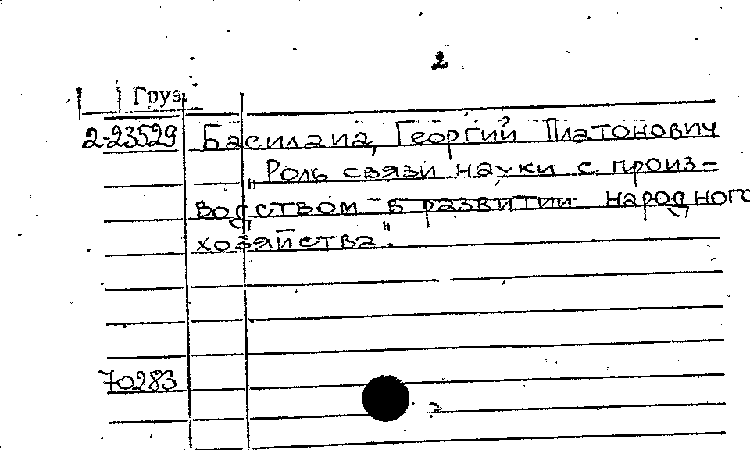 2
Груз.
2-23529 Басилаиа, Георгий Платонович
"Роль связи науки с произ-
водством в развитии народного
хозяйства".
70283